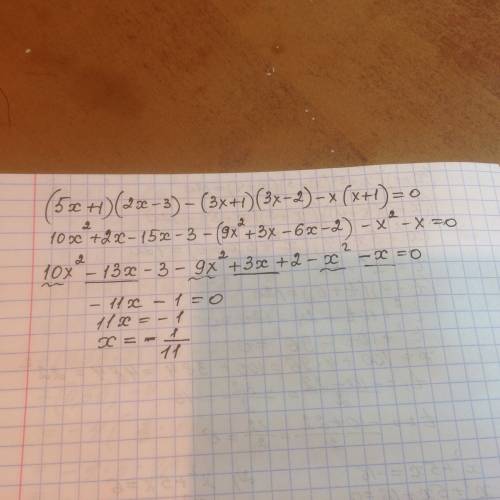 (5x+1)(2x-3)-(3x+1)(3x-2)-x(x+1)=0
10x²+2x-15x-3-(9x²+3x-6x-2)-x²-x=0
10x²-13x-3-9x²+3x+2-x²-x=0
-11x-1=0
11x=-1
x=-1/11